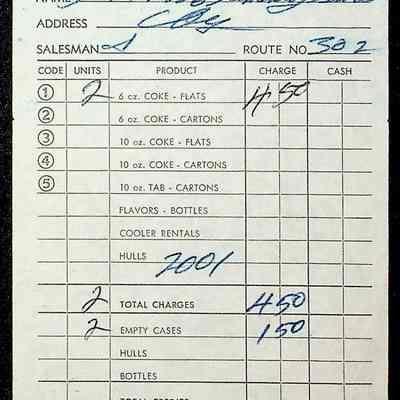 NAME
ADDRESS City
SALESMAN ROUTE NO 302
CODE UNITS PRODUCT CHARGE CASH
1 2 6 oz. COKE - FLATS 4 50
2 6 oz. COKE - CARTONS
3 10 oz. COKE - FLATS
4 10 oz. COKE - CARTONS
5 10 oz. TAB - CARTONS
FLAVORS - BOTTLES
COOLER RENTALS
HULLS
2001
2 TOTAL CHARGES 4 50
2 EMPTY CASES 1 50
HULLS
BOTTLES